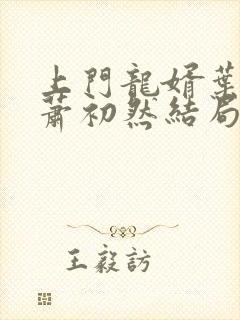 上門龍婿葉
蕭初然結局
王毅訪